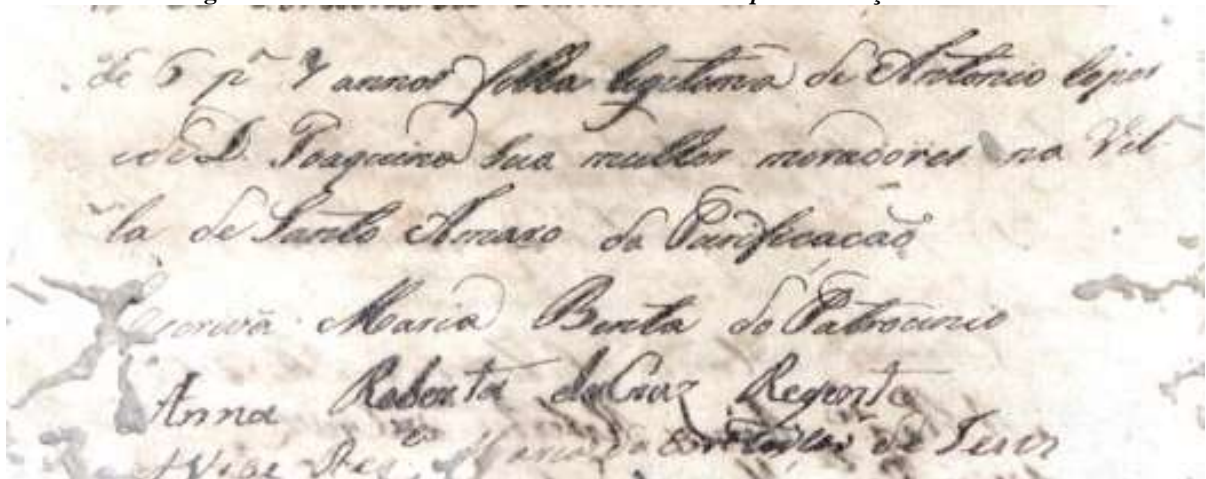 de 6 pª 7 annos folha legitima de Antonio Lopes
e de D. Joaquina sua mulher moradores na Vil
la de Santo Amaro da Purificacaõ
Escrivã Maria Benta do Patrocinio
Anna Roberta da Cruz Regente
A Vice Reg.e Maria da de Jesus